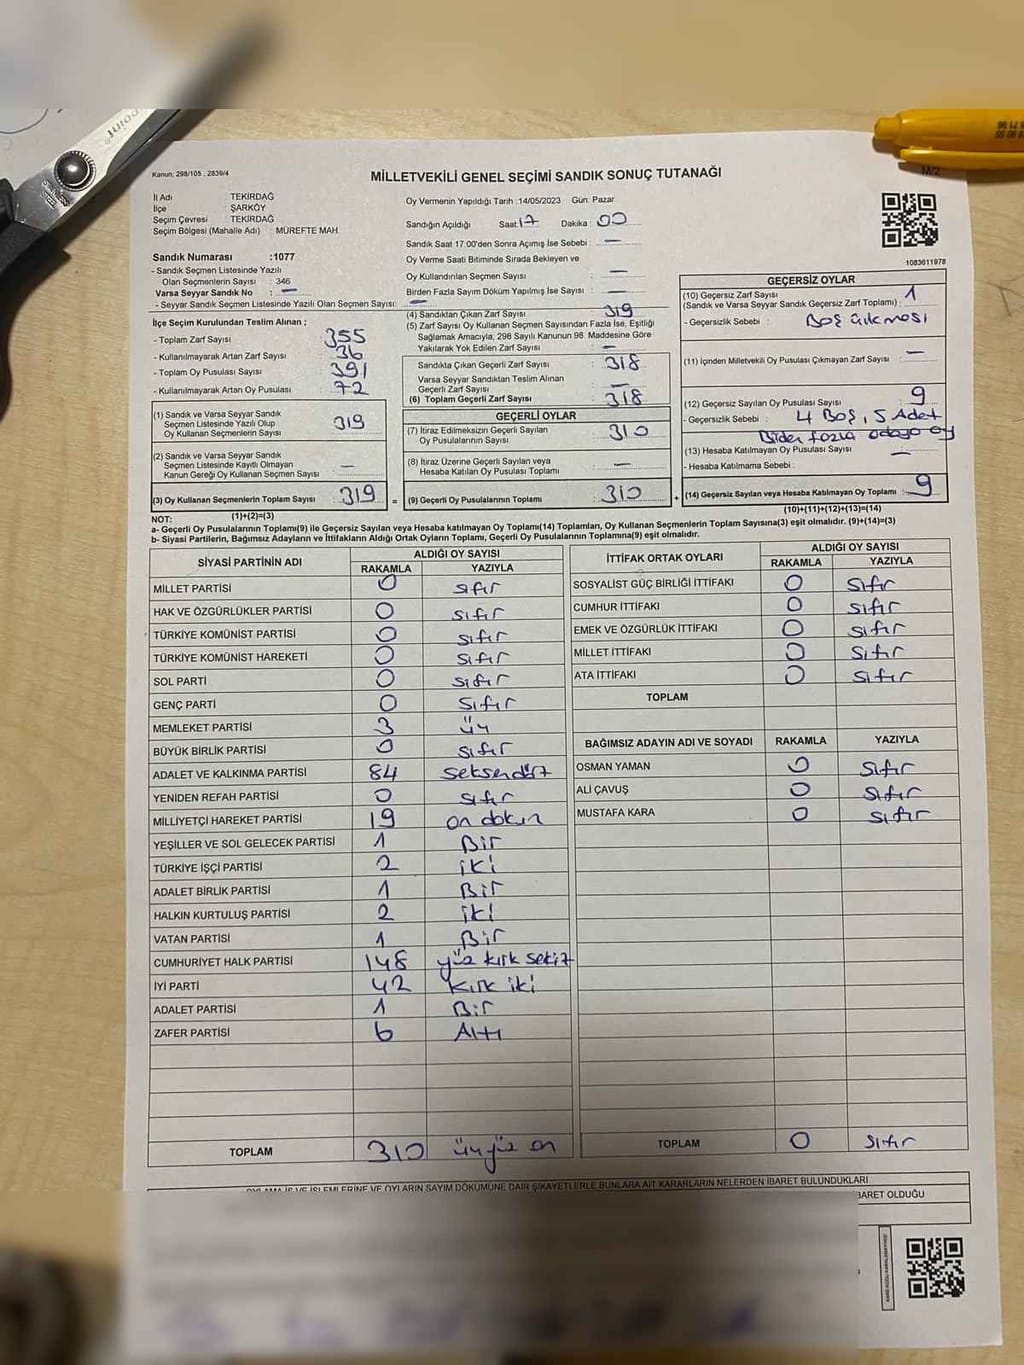 point
Kanun: 298/105 , 2839/4
MİLLETVEKİLİ GENEL SEÇİMİ SANDIK SONUÇ TUTANAĞI
M/2
İl Adı : TEKİRDAĞ
İlçe : ŞARKÖY
Seçim Çevresi : TEKİRDAĞ
Seçim Bölgesi (Mahalle Adı) : MÜREFTE MAH.
Oy Vermenin Yapıldığı Tarih :14/05/2023 Gün: Pazar
Sandığın Açıldığı Saat 17 Dakika 00
Sandık Saat 17.00'den Sonra Açımış İse Sebebi : —
Oy Verme Saati Bitiminde Sırada Bekleyen ve
Oy Kullandırılan Seçmen Sayısı : —
Birden Fazla Sayım Döküm Yapılmış İse Sayısı : —
1083611978
Sandık Numarası :1077
- Sandık Seçmen Listesinde Yazılı
Olan Seçmenlerin Sayısı : 346
Varsa Seyyar Sandık No : —
- Seyyar Sandık Seçmen Listesinde Yazılı Olan Seçmen Sayısı: —
İlçe Seçim Kurulundan Teslim Alınan ;
- Toplam Zarf Sayısı : 355
- Kullanılmayarak Artan Zarf Sayısı : 36
- Toplam Oy Pusulası Sayısı : 391
- Kullanılmayarak Artan Oy Pusulası : 72
(1) Sandık ve Varsa Seyyar Sandık
Seçmen Listesinde Yazılı Olup
Oy Kullanan Seçmenlerin Sayısı : 319
(2) Sandık ve Varsa Seyyar Sandık
Seçmen Listesinde Kayıtlı Olmayan
Kanun Gereği Oy Kullanan Seçmen Sayısı : —
(3) Oy Kullanan Seçmenlerin Toplam Sayısı : 319
(1)+(2)=(3)
(4) Sandıktan Çıkan Zarf Sayısı : 319
(5) Zarf Sayısı Oy Kullanan Seçmen Sayısından Fazla İse, Eşitliği
Sağlamak Amacıyla, 298 Sayılı Kanunun 98. Maddesine Göre
Yakılarak Yok Edilen Zarf Sayısı : —
Sandıkta Çıkan Geçerli Zarf Sayısı : 318
Varsa Seyyar Sandıktan Teslim Alınan
Geçerli Zarf Sayısı : —
(6) Toplam Geçerli Zarf Sayısı : 318
GEÇERLİ OYLAR
(7) İtiraz Edilmeksizin Geçerli Sayılan
Oy Pusulalarının Sayısı : 310
(8) İtiraz Üzerine Geçerli Sayılan veya
Hesaba Katılan Oy Pusulası Toplamı : —
= (9) Geçerli Oy Pusulalarının Toplamı : 310 +
GEÇERSİZ OYLAR
(10) Geçersiz Zarf Sayısı
(Sandık ve Varsa Seyyar Sandık Geçersiz Zarf Toplamı) : 1
- Geçersizlik Sebebi : Boş çıkması
(11) İçinden Milletvekili Oy Pusulası Çıkmayan Zarf Sayısı : —
(12) Geçersiz Sayılan Oy Pusulası Sayısı : 9
- Geçersizlik Sebebi : 4 Boş, 5 Adet
Birden fazla adaya oy
(13) Hesaba Katılmayan Oy Pusulası Sayısı : —
- Hesaba Katılmama Sebebi :
(14) Geçersiz Sayılan veya Hesaba Katılmayan Oy Toplamı : 9
(10)+(11)+(12)+(13)=(14)
NOT:
a- Geçerli Oy Pusulalarının Toplamı(9) ile Geçersiz Sayılan veya Hesaba katılmayan Oy Toplamı(14) Toplamları, Oy Kullanan Seçmenlerin Toplam Sayısına(3) eşit olmalıdır. (9)+(14)=(3)
b- Siyasi Partilerin, Bağımsız Adayların ve İttifakların Aldığı Ortak Oyların Toplamı, Geçerli Oy Pusulalarının Toplamına(9) eşit olmalıdır.
SİYASİ PARTİNİN ADI ALDIĞI OY SAYISI
RAKAMLA YAZIYLA
MİLLET PARTİSİ 0 sıfır
HAK VE ÖZGÜRLÜKLER PARTİSİ 0 sıfır
TÜRKİYE KOMÜNİST PARTİSİ 0 sıfır
TÜRKİYE KOMÜNİST HAREKETİ 0 sıfır
SOL PARTİ 0 sıfır
GENÇ PARTİ 0 sıfır
MEMLEKET PARTİSİ 3 üç
BÜYÜK BİRLİK PARTİSİ 0 sıfır
ADALET VE KALKINMA PARTİSİ 84 seksendört
YENİDEN REFAH PARTİSİ 0 sıfır
MİLLİYETÇİ HAREKET PARTİSİ 19 on dokuz
YEŞİLLER VE SOL GELECEK PARTİSİ 1 Bir
TÜRKİYE İŞÇİ PARTİSİ 2 iki
ADALET BİRLİK PARTİSİ 1 Bir
HALKIN KURTULUŞ PARTİSİ 2 iki
VATAN PARTİSİ 1 Bir
CUMHURİYET HALK PARTİSİ 148 yüz kırk sekiz
İYİ PARTİ 42 kırk iki
ADALET PARTİSİ 1 Bir
ZAFER PARTİSİ 6 Altı
TOPLAM 310 üçyüz on
İTTİFAK ORTAK OYLARI ALDIĞI OY SAYISI
RAKAMLA YAZIYLA
SOSYALİST GÜÇ BİRLİĞİ İTTİFAKI 0 sıfır
CUMHUR İTTİFAKI 0 sıfır
EMEK VE ÖZGÜRLÜK İTTİFAKI 0 sıfır
MİLLET İTTİFAKI 0 sıfır
ATA İTTİFAKI 0 sıfır
TOPLAM
BAĞIMSIZ ADAYIN ADI VE SOYADI RAKAMLA YAZIYLA
OSMAN YAMAN 0 sıfır
ALİ ÇAVUŞ 0 sıfır
MUSTAFA KARA 0 sıfır
TOPLAM 0 sıfır
OYLAMA İŞ VE İŞLEMLERİNE VE OYLARIN SAYIM DÖKÜMÜNE DAİR ŞİKAYETLERLE BUNLARA AİT KARARLARIN NELERDEN İBARET BULUNDUKLARI
İBARET OLDUĞU